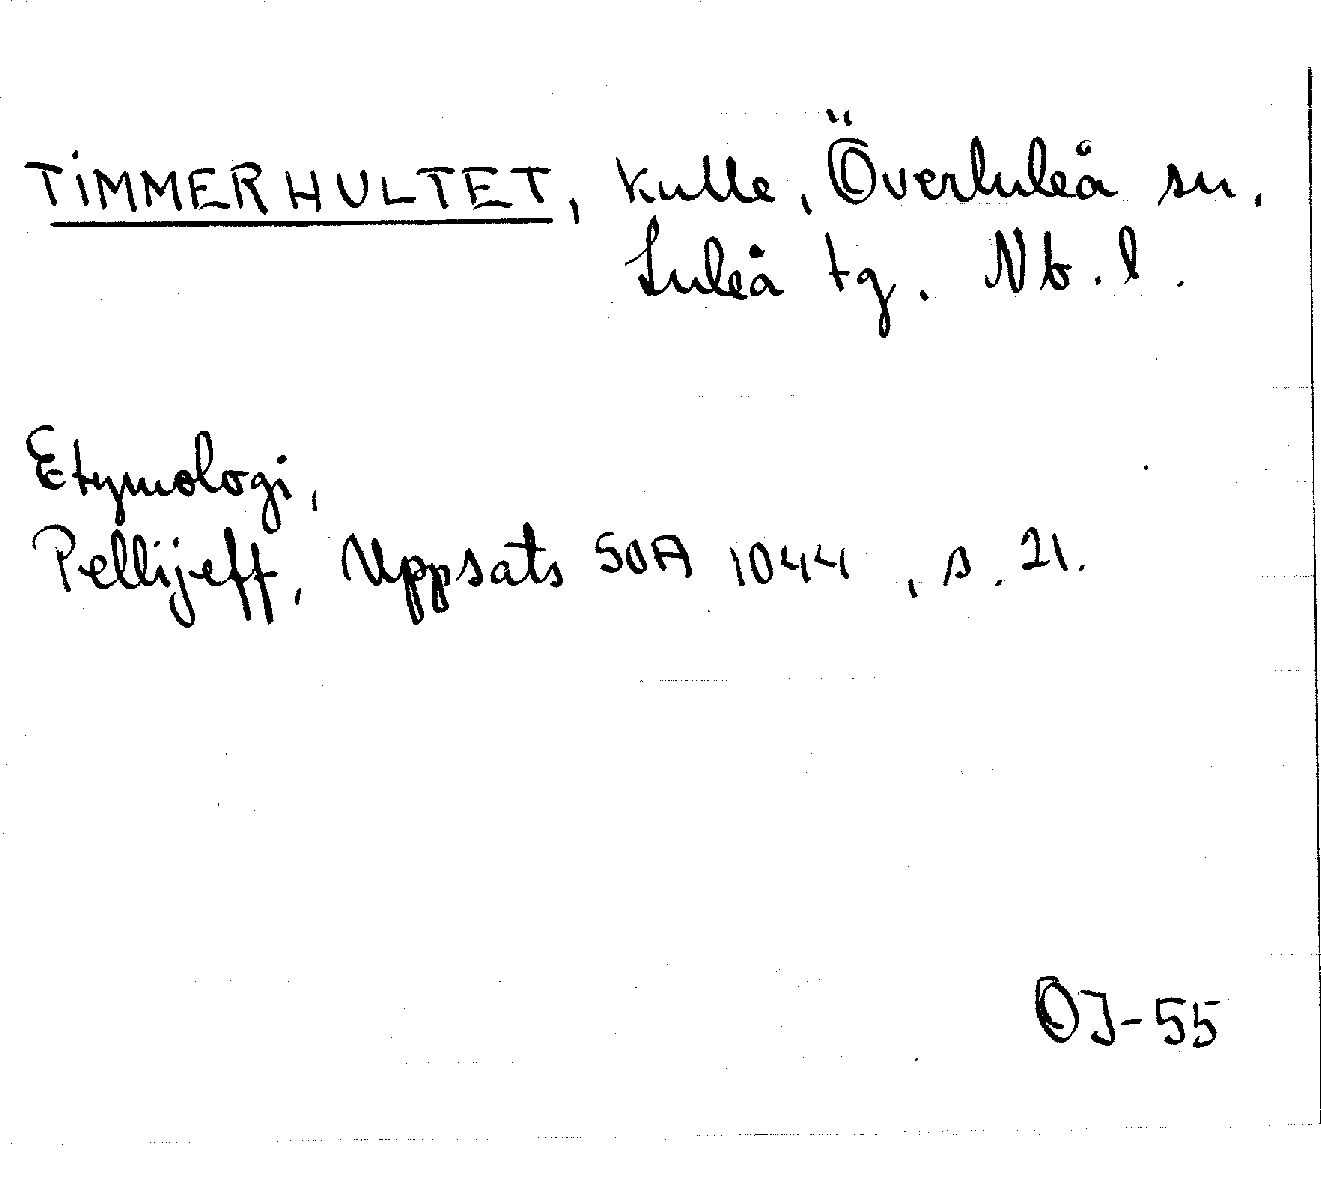 TIMMERHULTET, kulle, Överluleå sn.
Luleå tg. Nb. l.
Etymologi,
Pellijeff, Uppsats SOA 1044, s. 21.
OJ-55